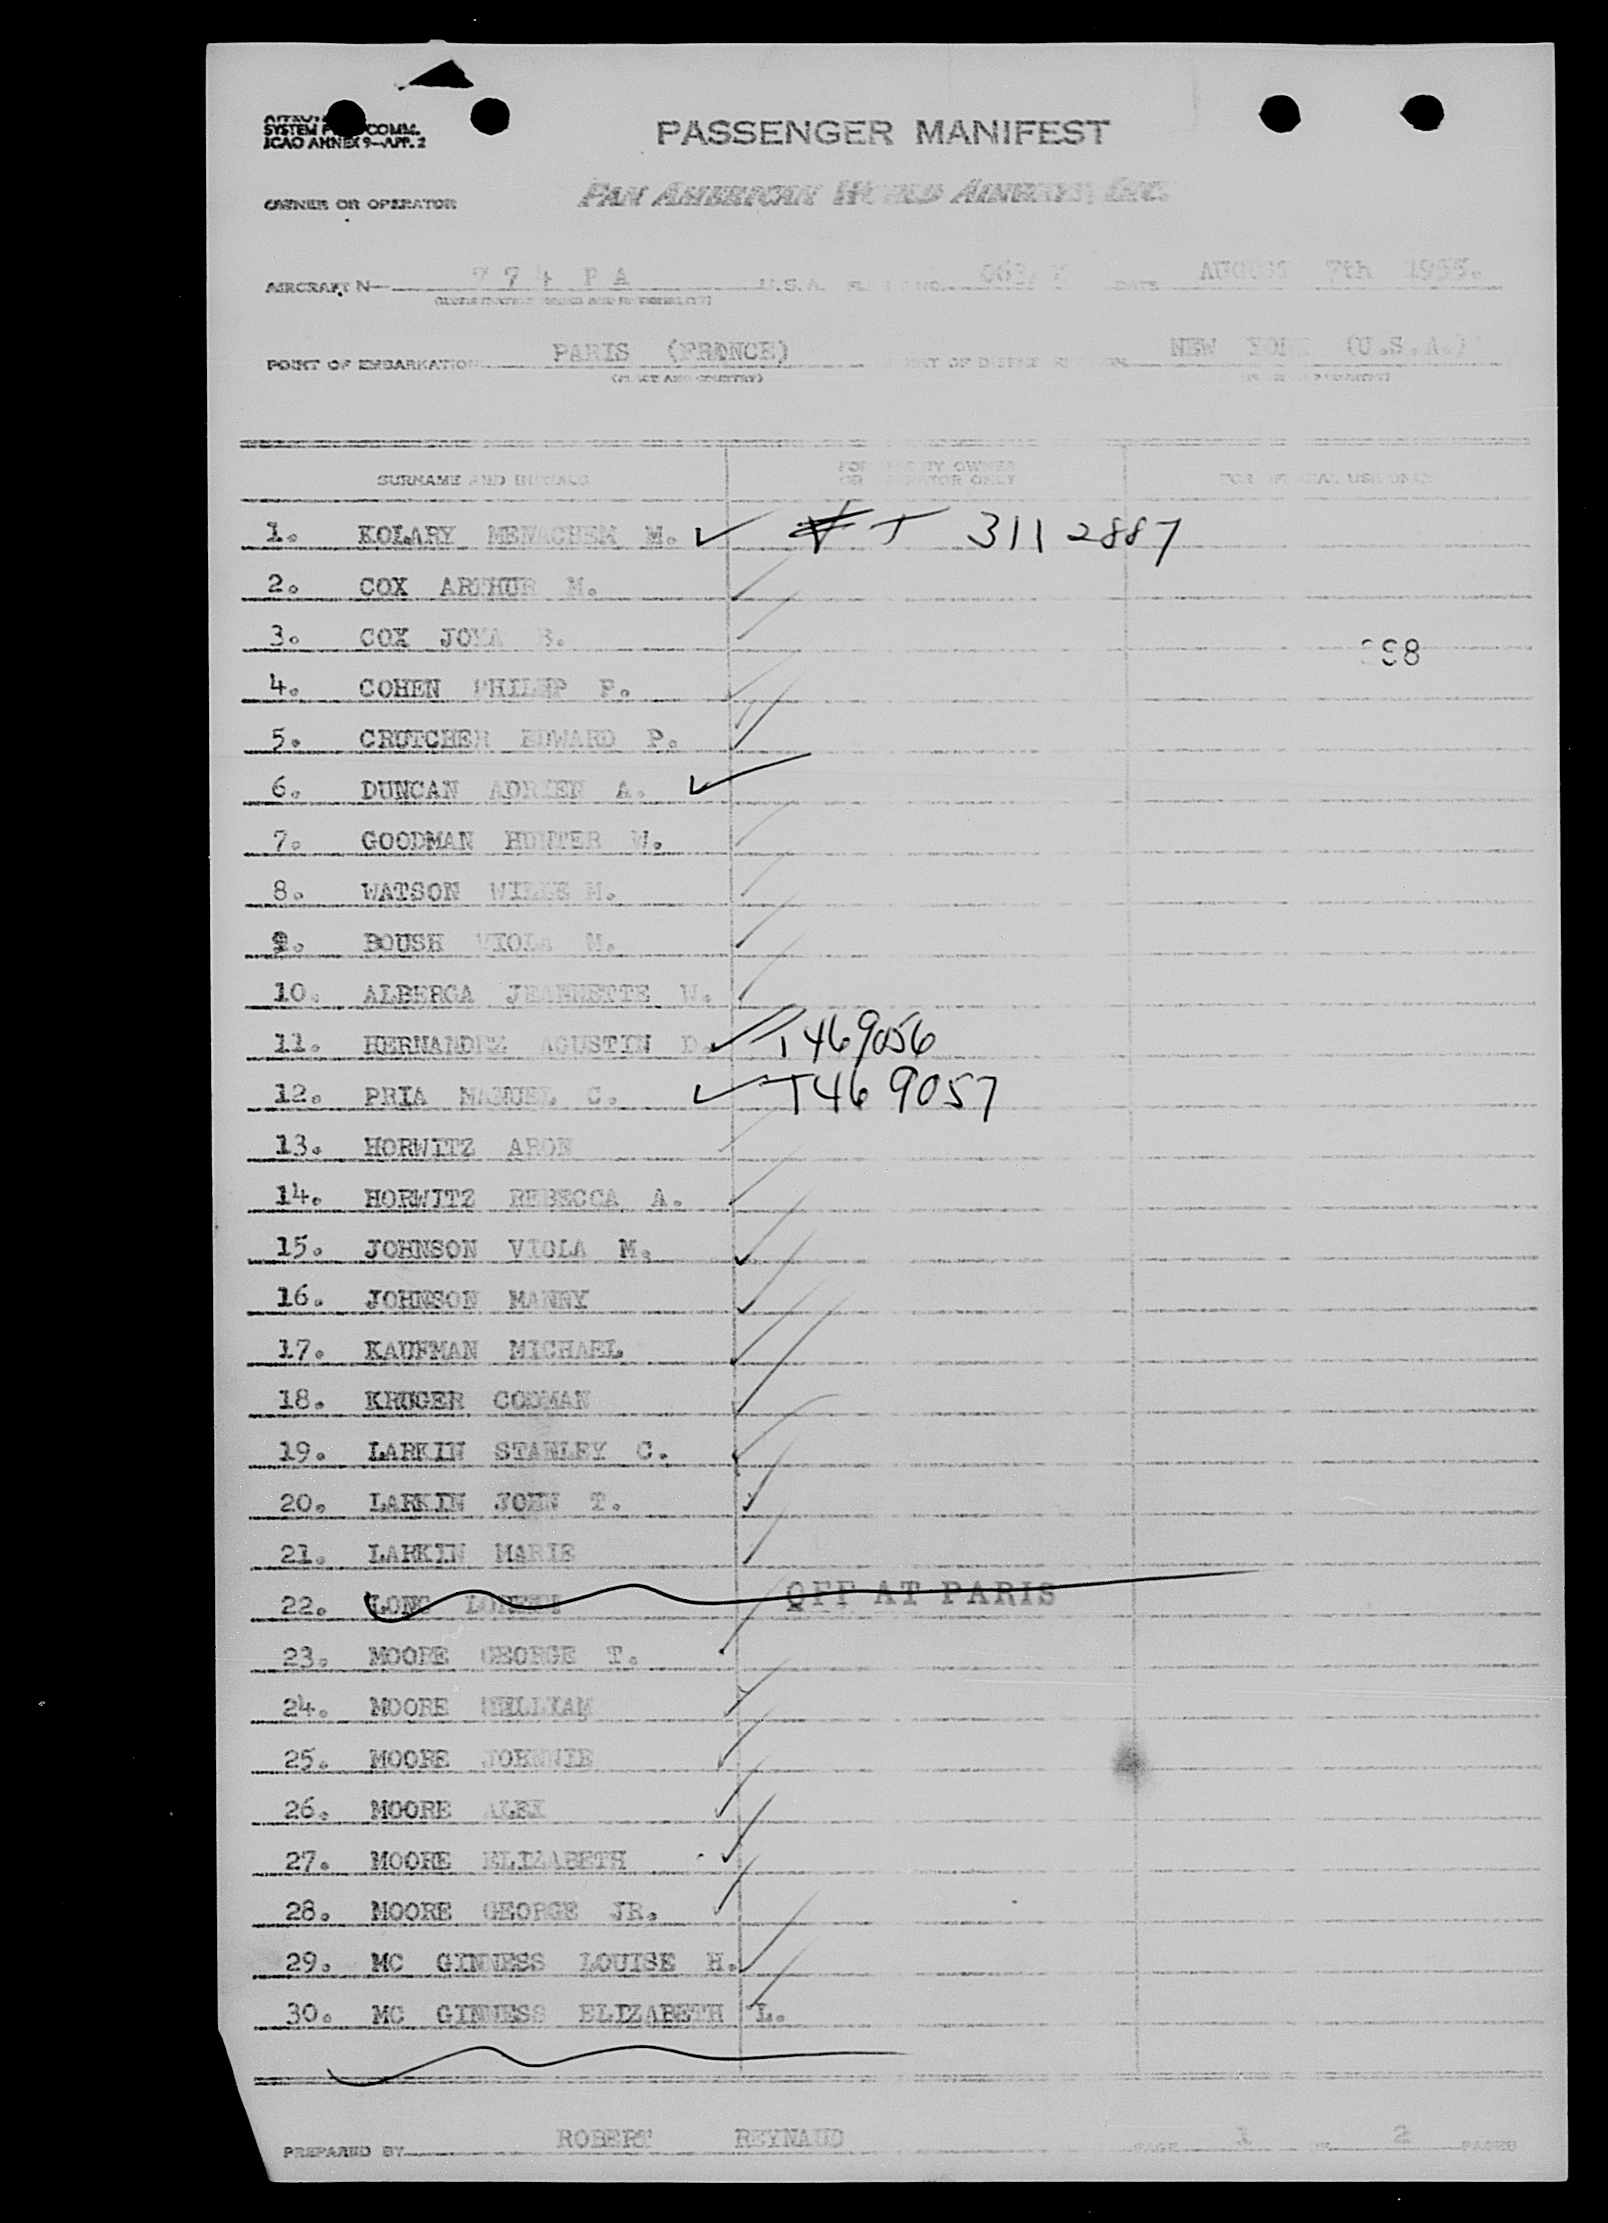 SYSTEM COMM.
ICAO ANNEX 9—APP. 2
PASSENGER MANIFEST
OWNER OR OPERATOR PAN AMERICAN WORLD AIRWAYS, INC.
AIRCRAFT N— 774 PA U.S.A. DATE AUGUST 7th 1955.
POINT OF EMBARKATION PARIS (FRANCE) NEW YORK (U.S.A.)
(PLACE AND COUNTRY)
SURNAME AND INITIALS FOR USE BY OWNER OR OPERATOR ONLY FOR OFFICIAL USE ONLY
1. KOLARY MENACHEM M. T 3112887
2. COX ARTHUR M.
3. COX B. 98
4. COHEN PHILIP P.
5. CRUTCHER EDWARD P.
6. DUNCAN ADRIEN A.
7. GOODMAN HUNTER W.
8. WATSON M.
9. BOUSH VIOLA M.
10. ALBERGA JEANNETTE W.
11. HERNANDEZ AGUSTIN D. T469056
12. PRIA MANUEL C. T469057
13. HORWITZ ARON
14. HORWITZ REBECCA A.
15. JOHNSON VIOLA M.
16. JOHNSON MANNY
17. KAUFMAN MICHAEL
18. KRUGER CODMAN
19. LARKIN STANLEY C.
20. LARKIN JOHN T.
21. LARKIN MARIE
22. LONG OFF AT PARIS
23. MOORE GEORGE T.
24. MOORE WILLIAM
25. MOORE JOHNNIE
26. MOORE ALEX
27. MOORE ELIZABETH
28. MOORE GEORGE JR.
29. MC GINNESS LOUISE H.
30. MC GINNESS ELIZABETH L.
PREPARED BY ROBERT REYNAUD PAGE 1 OF 2 PAGES